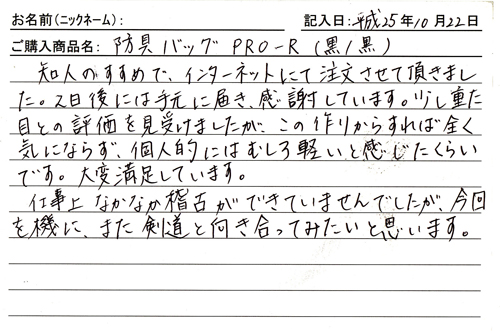 お名前(ニックネーム): 記入日:平成25年10月22日
ご購入商品名: 防具バッグPRO-R(黒/黒)
知人のすすめで、インターネットにて注文させて頂きまし
た。2日後には手元に届き、感謝しています。少し重た
目との評価を見受けましたが、この作りからすれば全く
気にならず、個人的にはむしろ軽いと感じたくらい
です。大変満足しています。
仕事上なかなか稽古ができていませんでしたが、今回
を機に、また剣道と向き合ってみたいと思います。